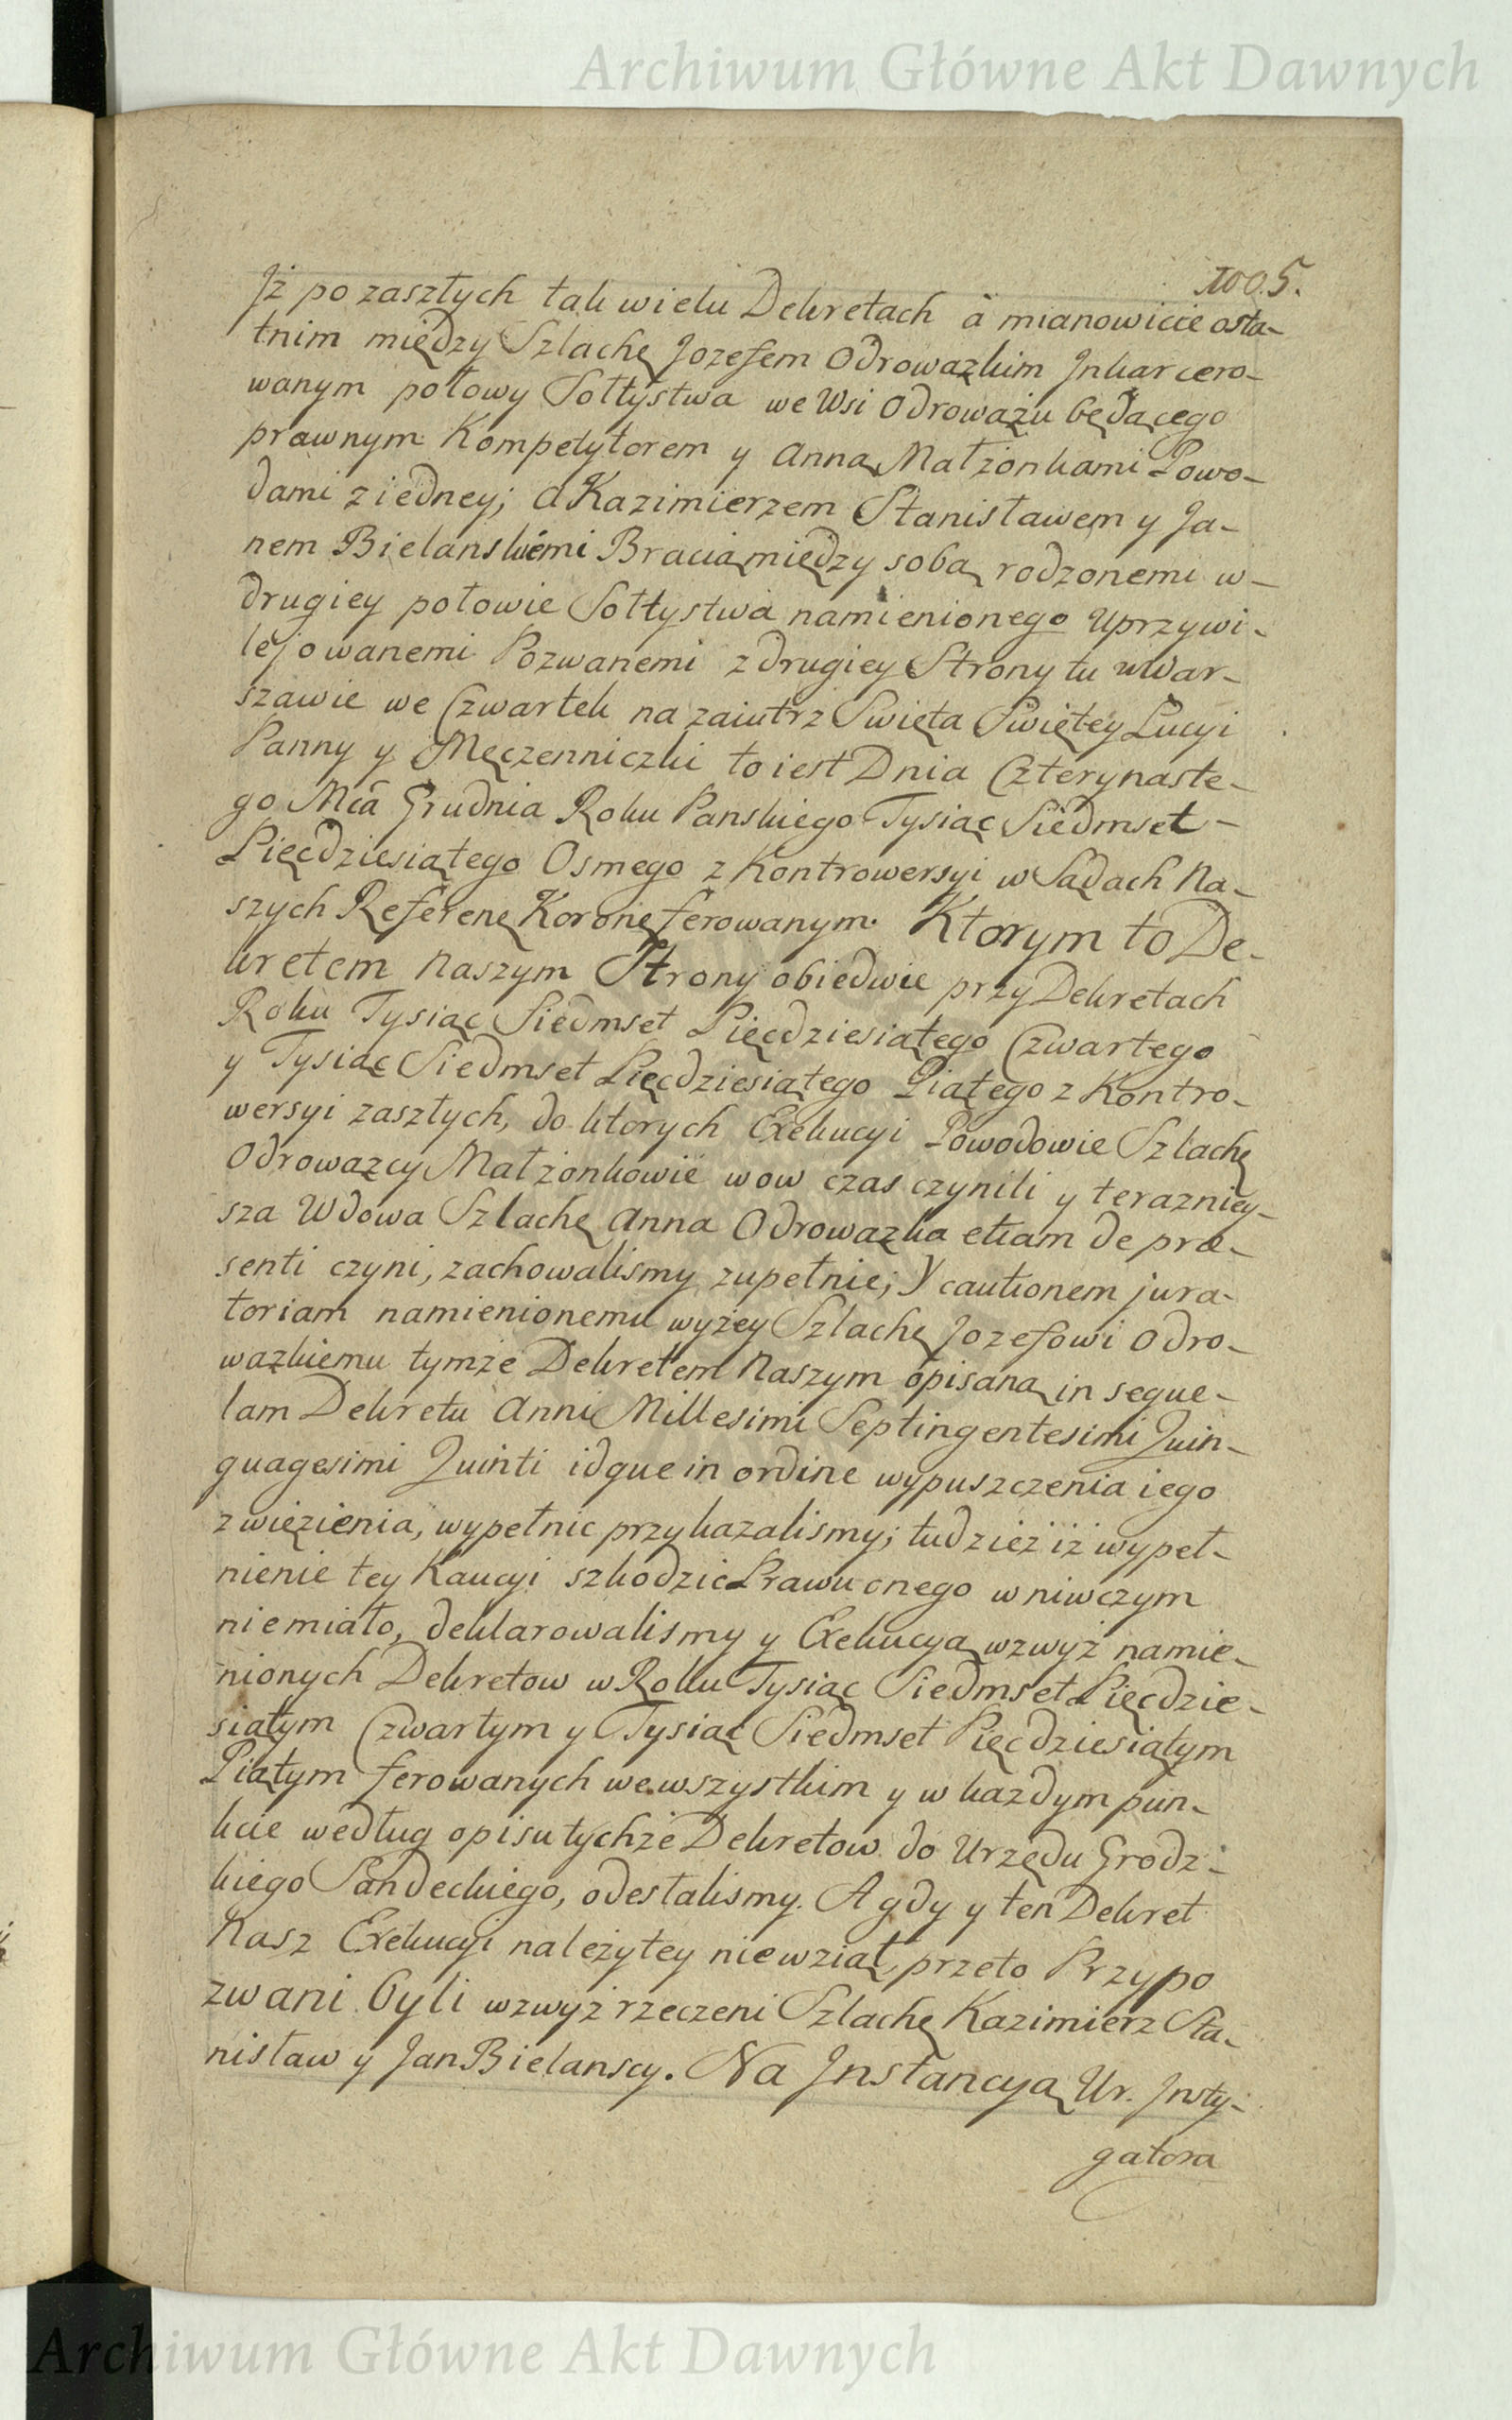 Archiwum Główne Akt Dawnych
1005.
Jż po zaszłych tak wielu Dekretach â mianowicie osta-
tnim między Szlachę Jozefem Odrowązkim Jnkarcero-
wanym połowy Sołtystwa we Wsi Odrowążu będącego
prawnym Kompetytorem y Anną Małżonkami Powo-
dami z iedney; a Kazimierzem Stanisławem y Ja-
nem Bielanskiemi Bracią między sobą rodzonemi w-
drugiey połowie Sołtystwa namienionego Uprzywi-
lejowanemi Pozwanemi z drugiey Strony tu w War-
szawie we Czwartek na zaiutrz Swięta Swiętey Lucyi
Panny y Męczenniczki to iest Dnia Czterynaste-
go Mca Grudnia Roku Panskiego Tysiąc Siedmset-
Pięcdziesiątego Osmego z Kontrowersyi w Sądach Na-
szych Referenę Koronę ferowanym. Ktorym to De-
kretem Naszym Strony obiedwie przy Dekretach
Roku Tysiąc Siedmset Pięcdziesiątego Czwartego
y Tysiąc Siedmset Pięcdziesiątego Piątego z Kontro-
wersyi zaszłych, do ktorych Exekucyi Powodowie Szlachę
Odrowązcy Małżonkowie wow czas czynili y terazniey-
sza Wdowa Szlachę Anna Odrowązka etiam de præ-
senti czyni, zachowalismy zupełnie; y cautionem jura-
toriam namienionemu wyżey Szlachę Jozefowi Odro-
wązkiemu tymże Dekretem Naszym opisaną in seque-
lam Dekretu Anni Millesimi Septingentesimi Quin-
quagesimi Quinti idque in ordine wypuszczenia iego
z więzienia, wypełnic przykazalismy; tudzież iż wypeł-
nienie tey Kaucyi szkodzic Prawu onego w niwczym
niemiało, deklarowalismy y Exekucyą wzwyż namie-
nionych Dekretow w Roku Tysiąc Siedmset Pięcdzie-
siątym Czwartym y Tysiąc Siedmset Pięcdziesiątym
Piątym ferowanych we wszystkim y w kazdym pun-
kcie według opisu tychże Dekretow do Urzędu Grodz-
kiego Sandeckiego, odesłalismy. A gdy y ten Dekret
Nasz Exekucyi należytey niewziął, przeto Przypo
zwani byli wzwyż rzeczeni Szlachę Kazimierz Sta-
nisław y Jan Bielanscy. Na Jnstancyą Ur. Jnsty-
gatora
Archiwum Główne Akt Dawnych